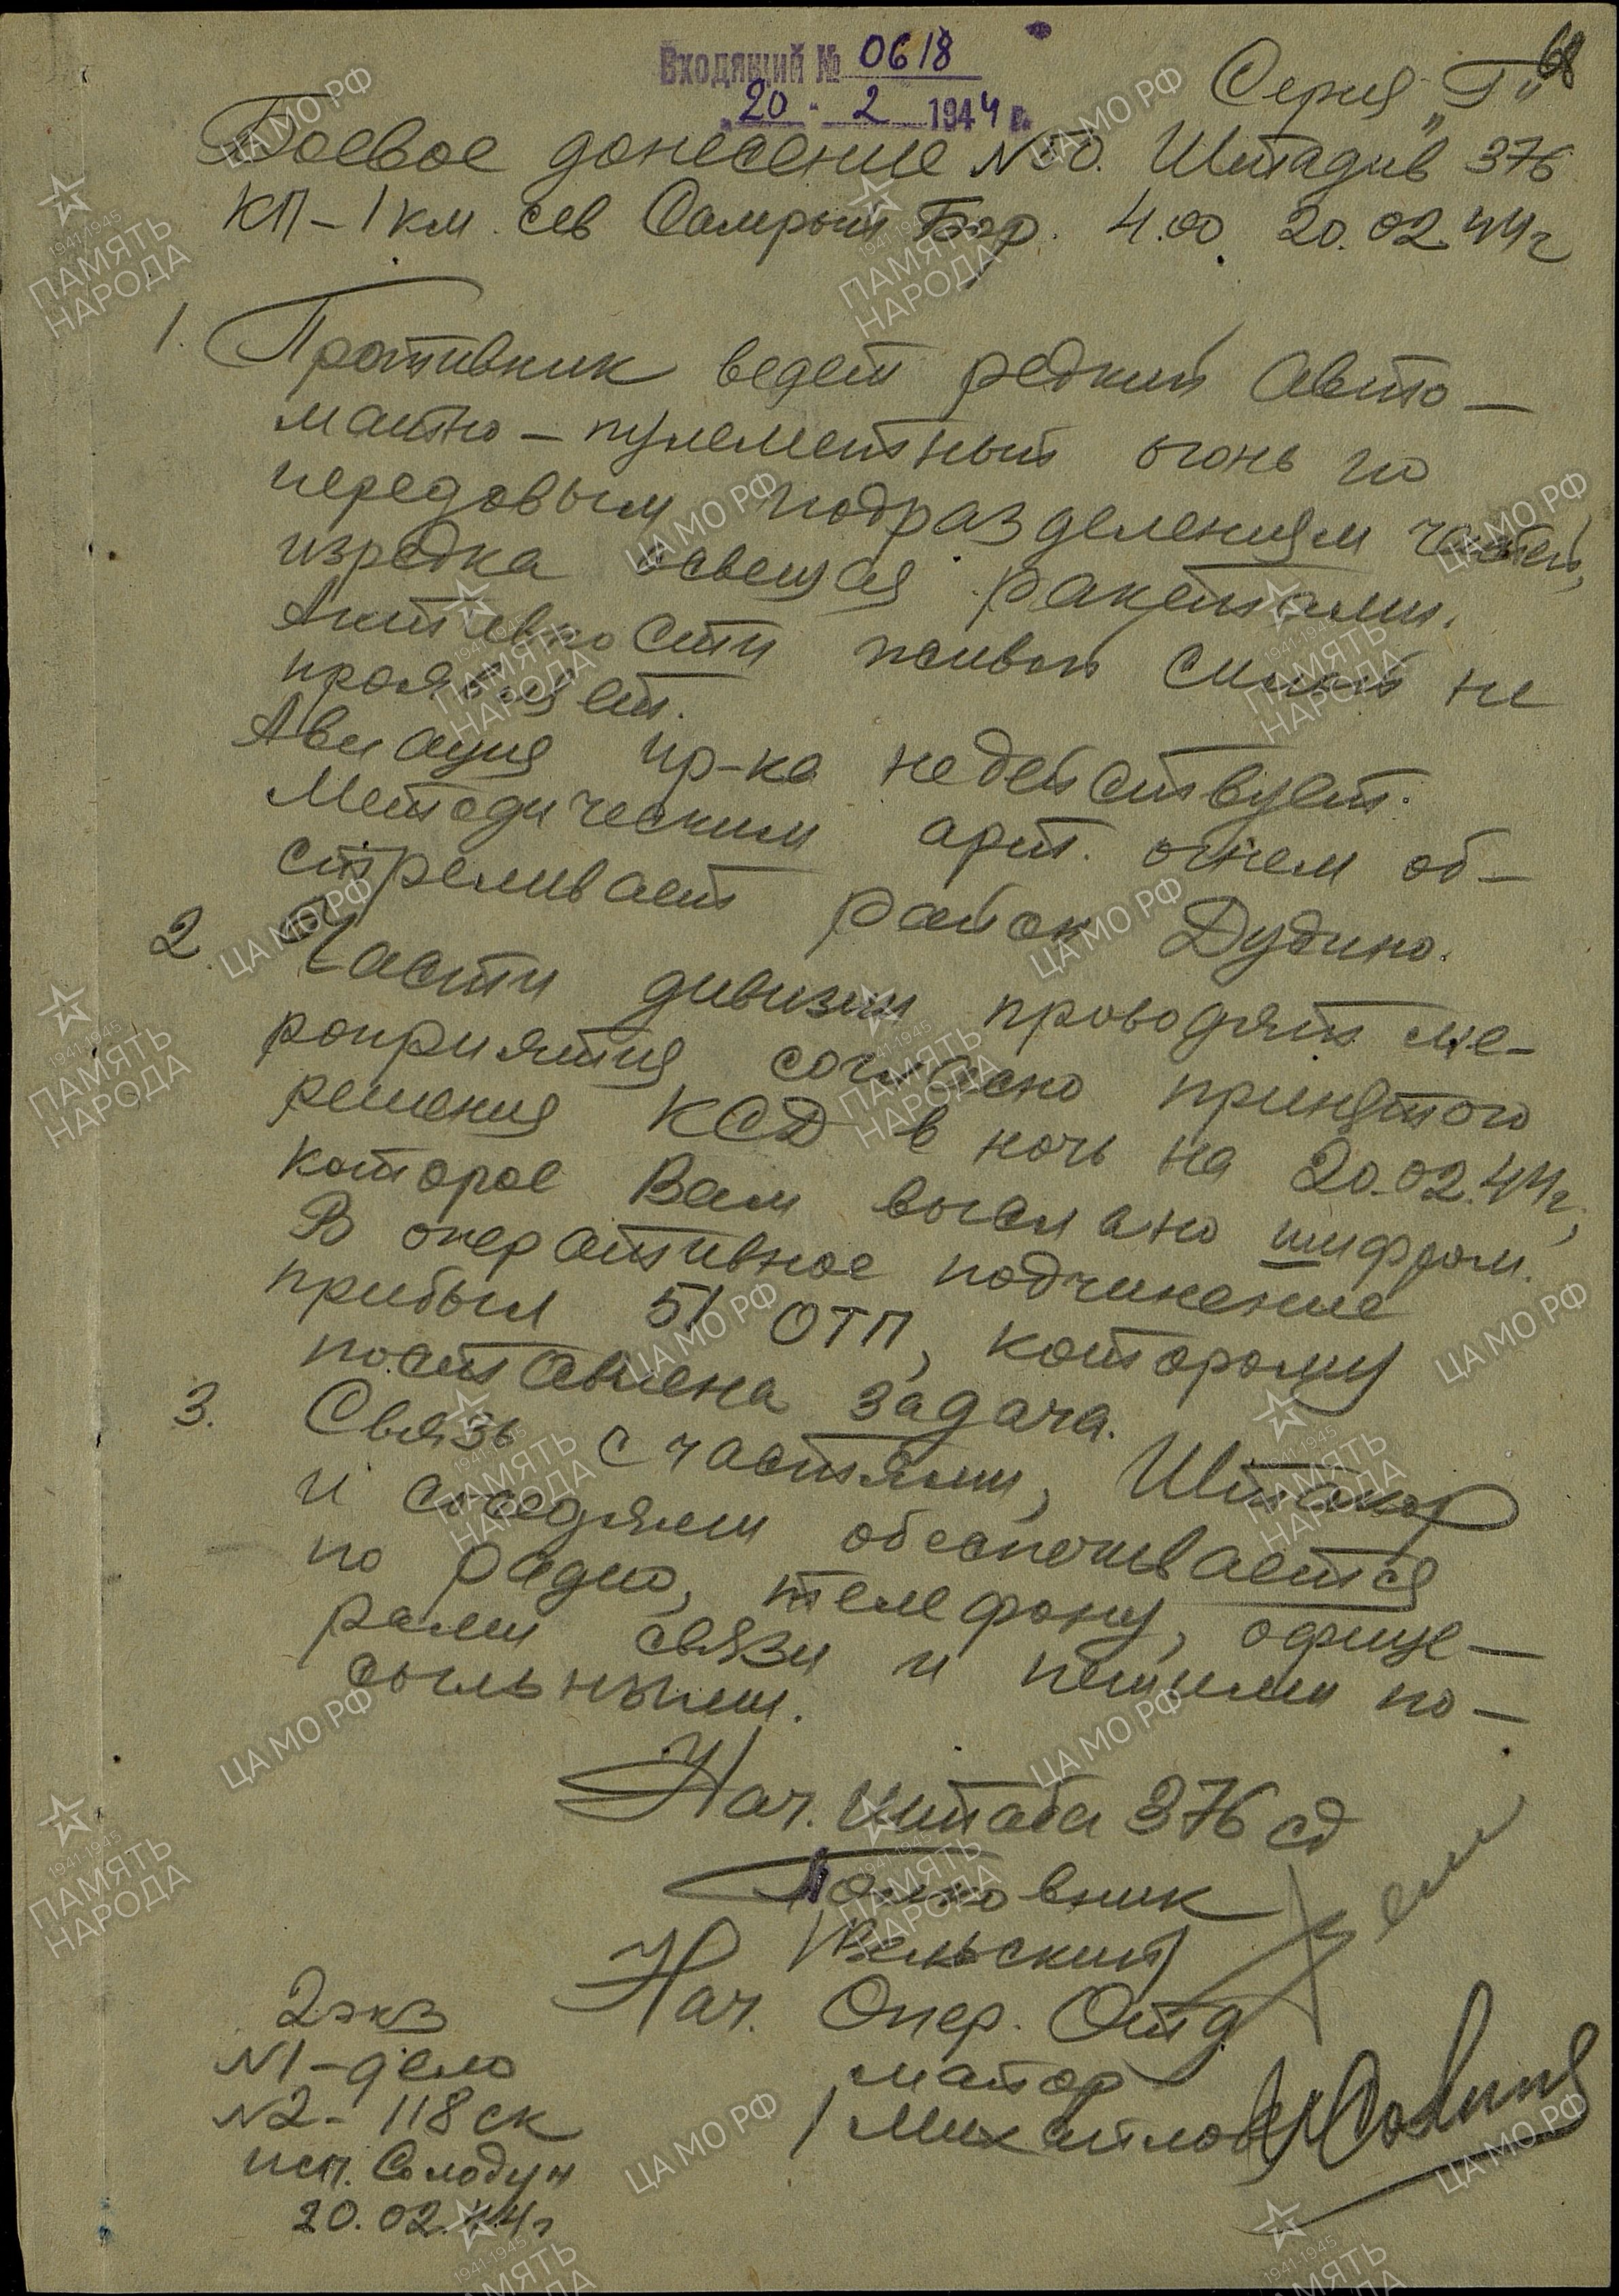 68
Входящий № 0618
20 - 2 1944 г.
Серия „Г"
Боевое донесение №50. Штадив 376
КП – 1 км. сев Самрый Бор. 4.00 20.02.44г
1. Противник ведет редкий авто–
матно – пулеметный огонь по
передовым подразделениям частей,
изредка освещая ракетами.
Активности живой силой не
проявляет.
Авиация пр-ка недействует.
Методическим арт. огнем об–
стреливает район Дубино.
2. Части дивизии проводят ме–
роприятия согласно принятого
решения КСД в ночь на 20.02.44г,
которое Вам выслано шифром.
В оперативное подчинение
прибыл 51 ОТП, которому
поставлена задача.
3. Связь с частями, Штакор
и соседями обеспечивается
по радио, телефону, офице–
рами связи и пешими по–
сыльными.
Нач. штаба 376 сд
Полковник
/Вельский/
Нач. Опер. Отд
майор
/Михайлов/
2 экз
№1 – дело
№2 – 118 ск
исп. Солодун
20.02.44г
ЦА МО РФ
1941-1945
ПАМЯТЬ
НАРОДА